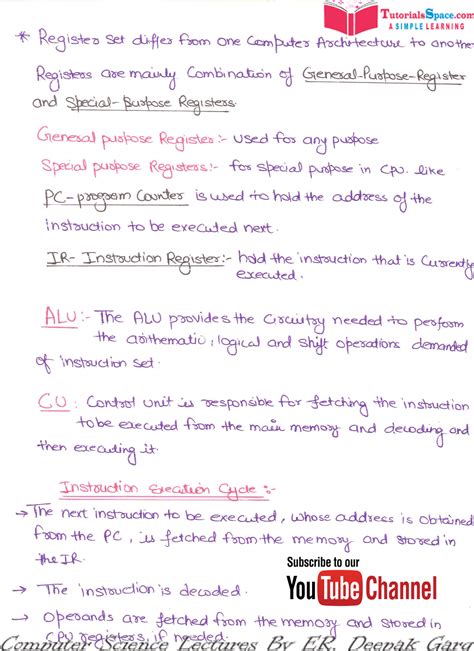 TutorialsSpace.com
A SIMPLE LEARNING
* Register set differ from one Computer Architecture to anothe
Registers are mainly Combination of General-Purpose-Register
and Special-Purpose Registers.
General purpose Register:- used for any purpose
Special purpose Registers:- for special purpose in CPU. like
PC-program Counter is used to hold the address of the
instruction to be executed next.
IR- Instruction Register:- hold the instruction that is Currently
executed.
ALU:- The ALU provides the Circuitry needed to perform
the arithematic, logical and shift operations demanded
of instruction set.
CU: Control unit is responsible for fetching the instruction
to be executed from the main memory and decoding and
then executing it.
Instruction Execution Cycle:-
→ The next instruction to be executed, whose address is obtained
from the PC, is fetched from the memory and stored in
the IR.
Subscribe to our
YouTube Channel
→ The instruction is decoded.
→ Operands are fetched from the memory and stored in
CPU registers, if needed.
Computer Science Lectures By ER. Deepak Garg